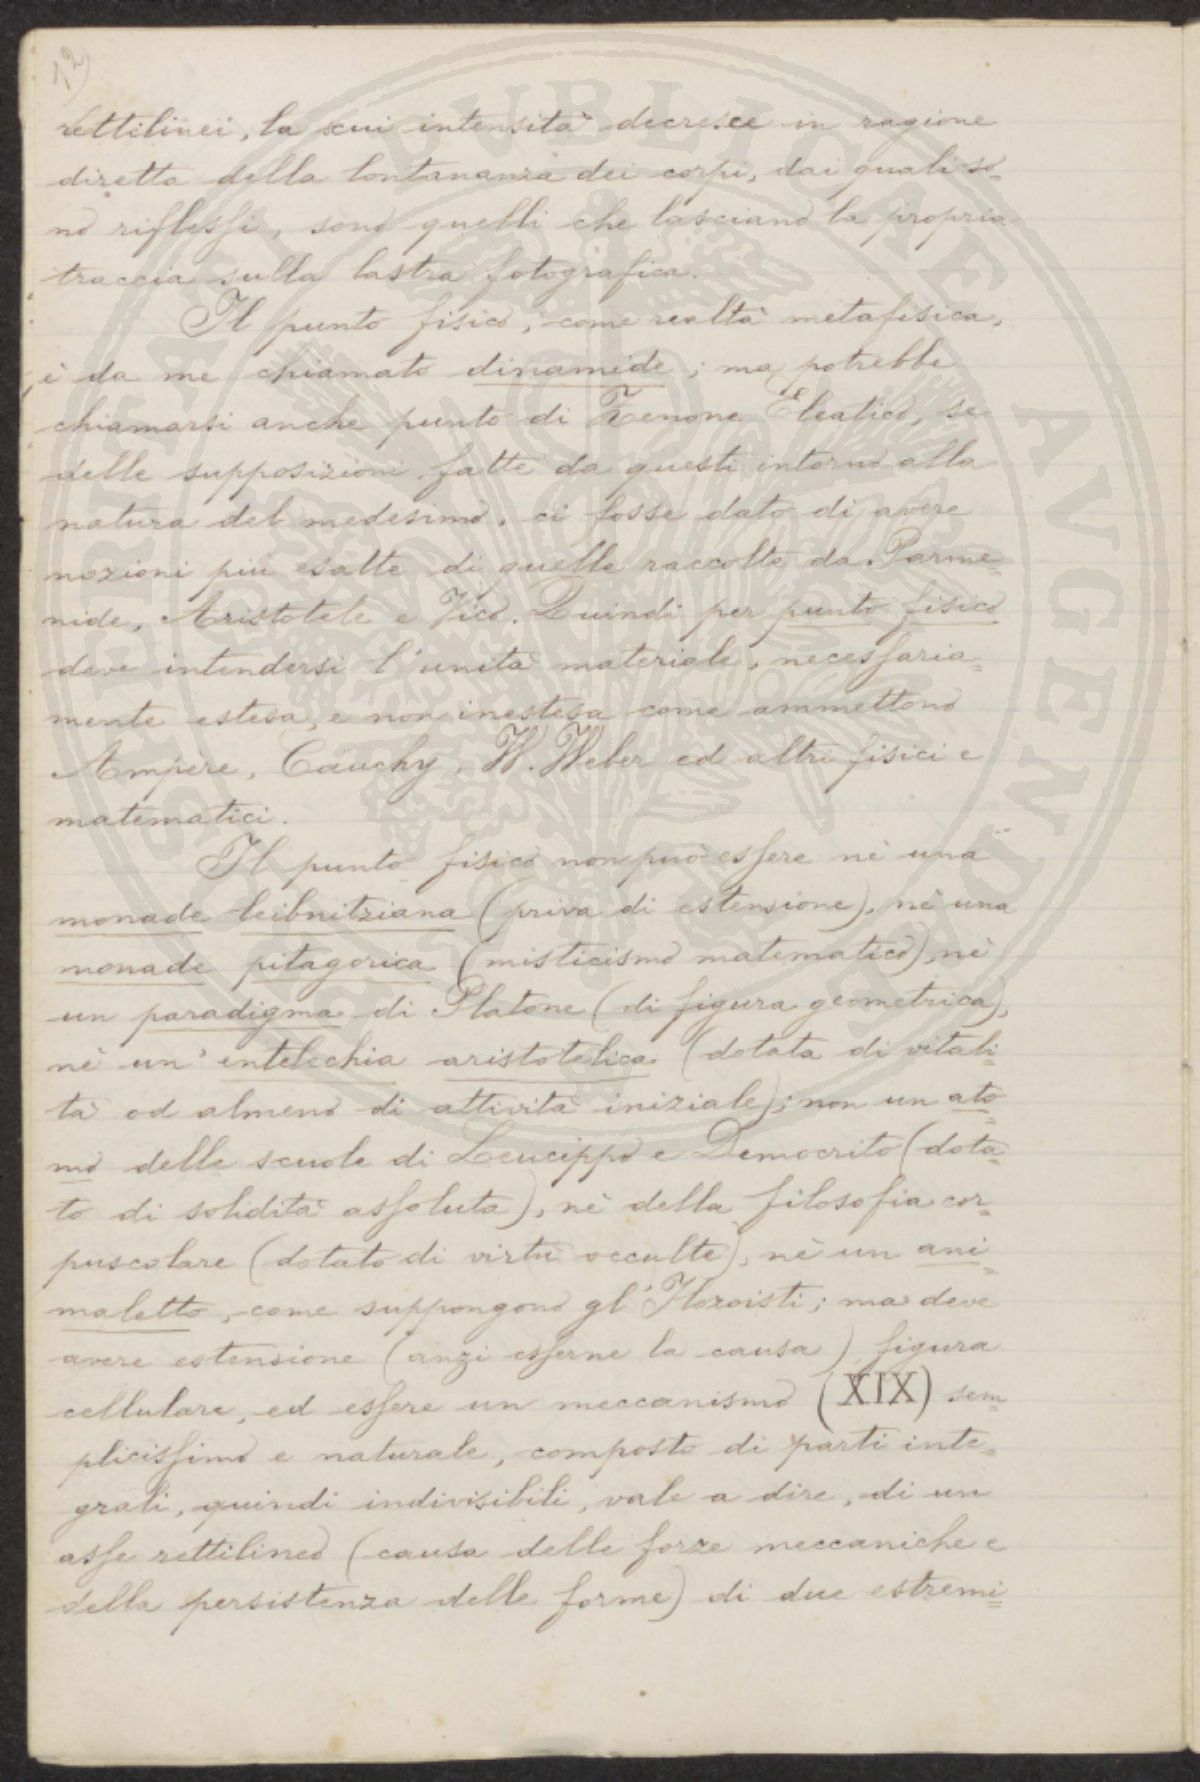 12)
rettilinei, la cui intensità decresce in ragione
diretta della lontananza dei corpi, dai quali so-
no riflessi, sono quelli che lasciano la propria
traccia sulla lastra fotografica.
Il punto fisico, come realtà metafisica,
è da me chiamato dinamide; ma potrebbe
chiamarsi anche punto di Zenone Eleatico, se
delle supposizioni fatte da questi intorno alla
natura del medesimo, ci fosse dato di avere
nozioni più esatte di quelle raccolte da Parme=
nide, Aristotele e Vico. Quindi per punto fisico
deve intendersi l'unità materiale, necessaria=
mente estesa, e non inestesa come ammettono
Ampère, Cauchy, W. Weber ed altri fisici e
matematici.
Il punto fisico non può essere nè una
monade leibnitziana (priva di estensione), nè una
monade pitagorica (misticismo matematico), nè
un paradigma di Platone (di figura geometrica),
nè un' entelechia aristotelica (dotata di vitali=
tà od almeno di attività iniziale); non un ato=
mo delle scuole di Leucippo e Democrito (dota=
to di solidità assoluta), nè della filosofia cor=
puscolare (dotato di virtù occulte), nè un ani=
maletto, come suppongono gl'Ilozoisti; ma deve
avere estensione (anzi esserne la causa) figura
cellulare, ed essere un meccanismo (XIX) sem=
plicissimo e naturale, composto di parti inte=
grali, quindi indivisibili, vale a dire, di un
asse rettilineo (causa delle forze meccaniche e
della persistenza delle forme) di due estremi=